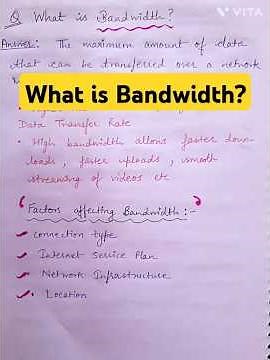 VITA
Q What is Bandwidth?
Answer: The maximum amount of data
that can be transferred over a network
What is Bandwidth?
Data Transfer Rate
• High bandwidth allows faster down-
loads, faster uploads, smooth
streaming of videos etc
Factors affecting Bandwidth :-
✓ Connection type
✓ Internet Service Plan
✓ Network Infrastructure
✓ • Location